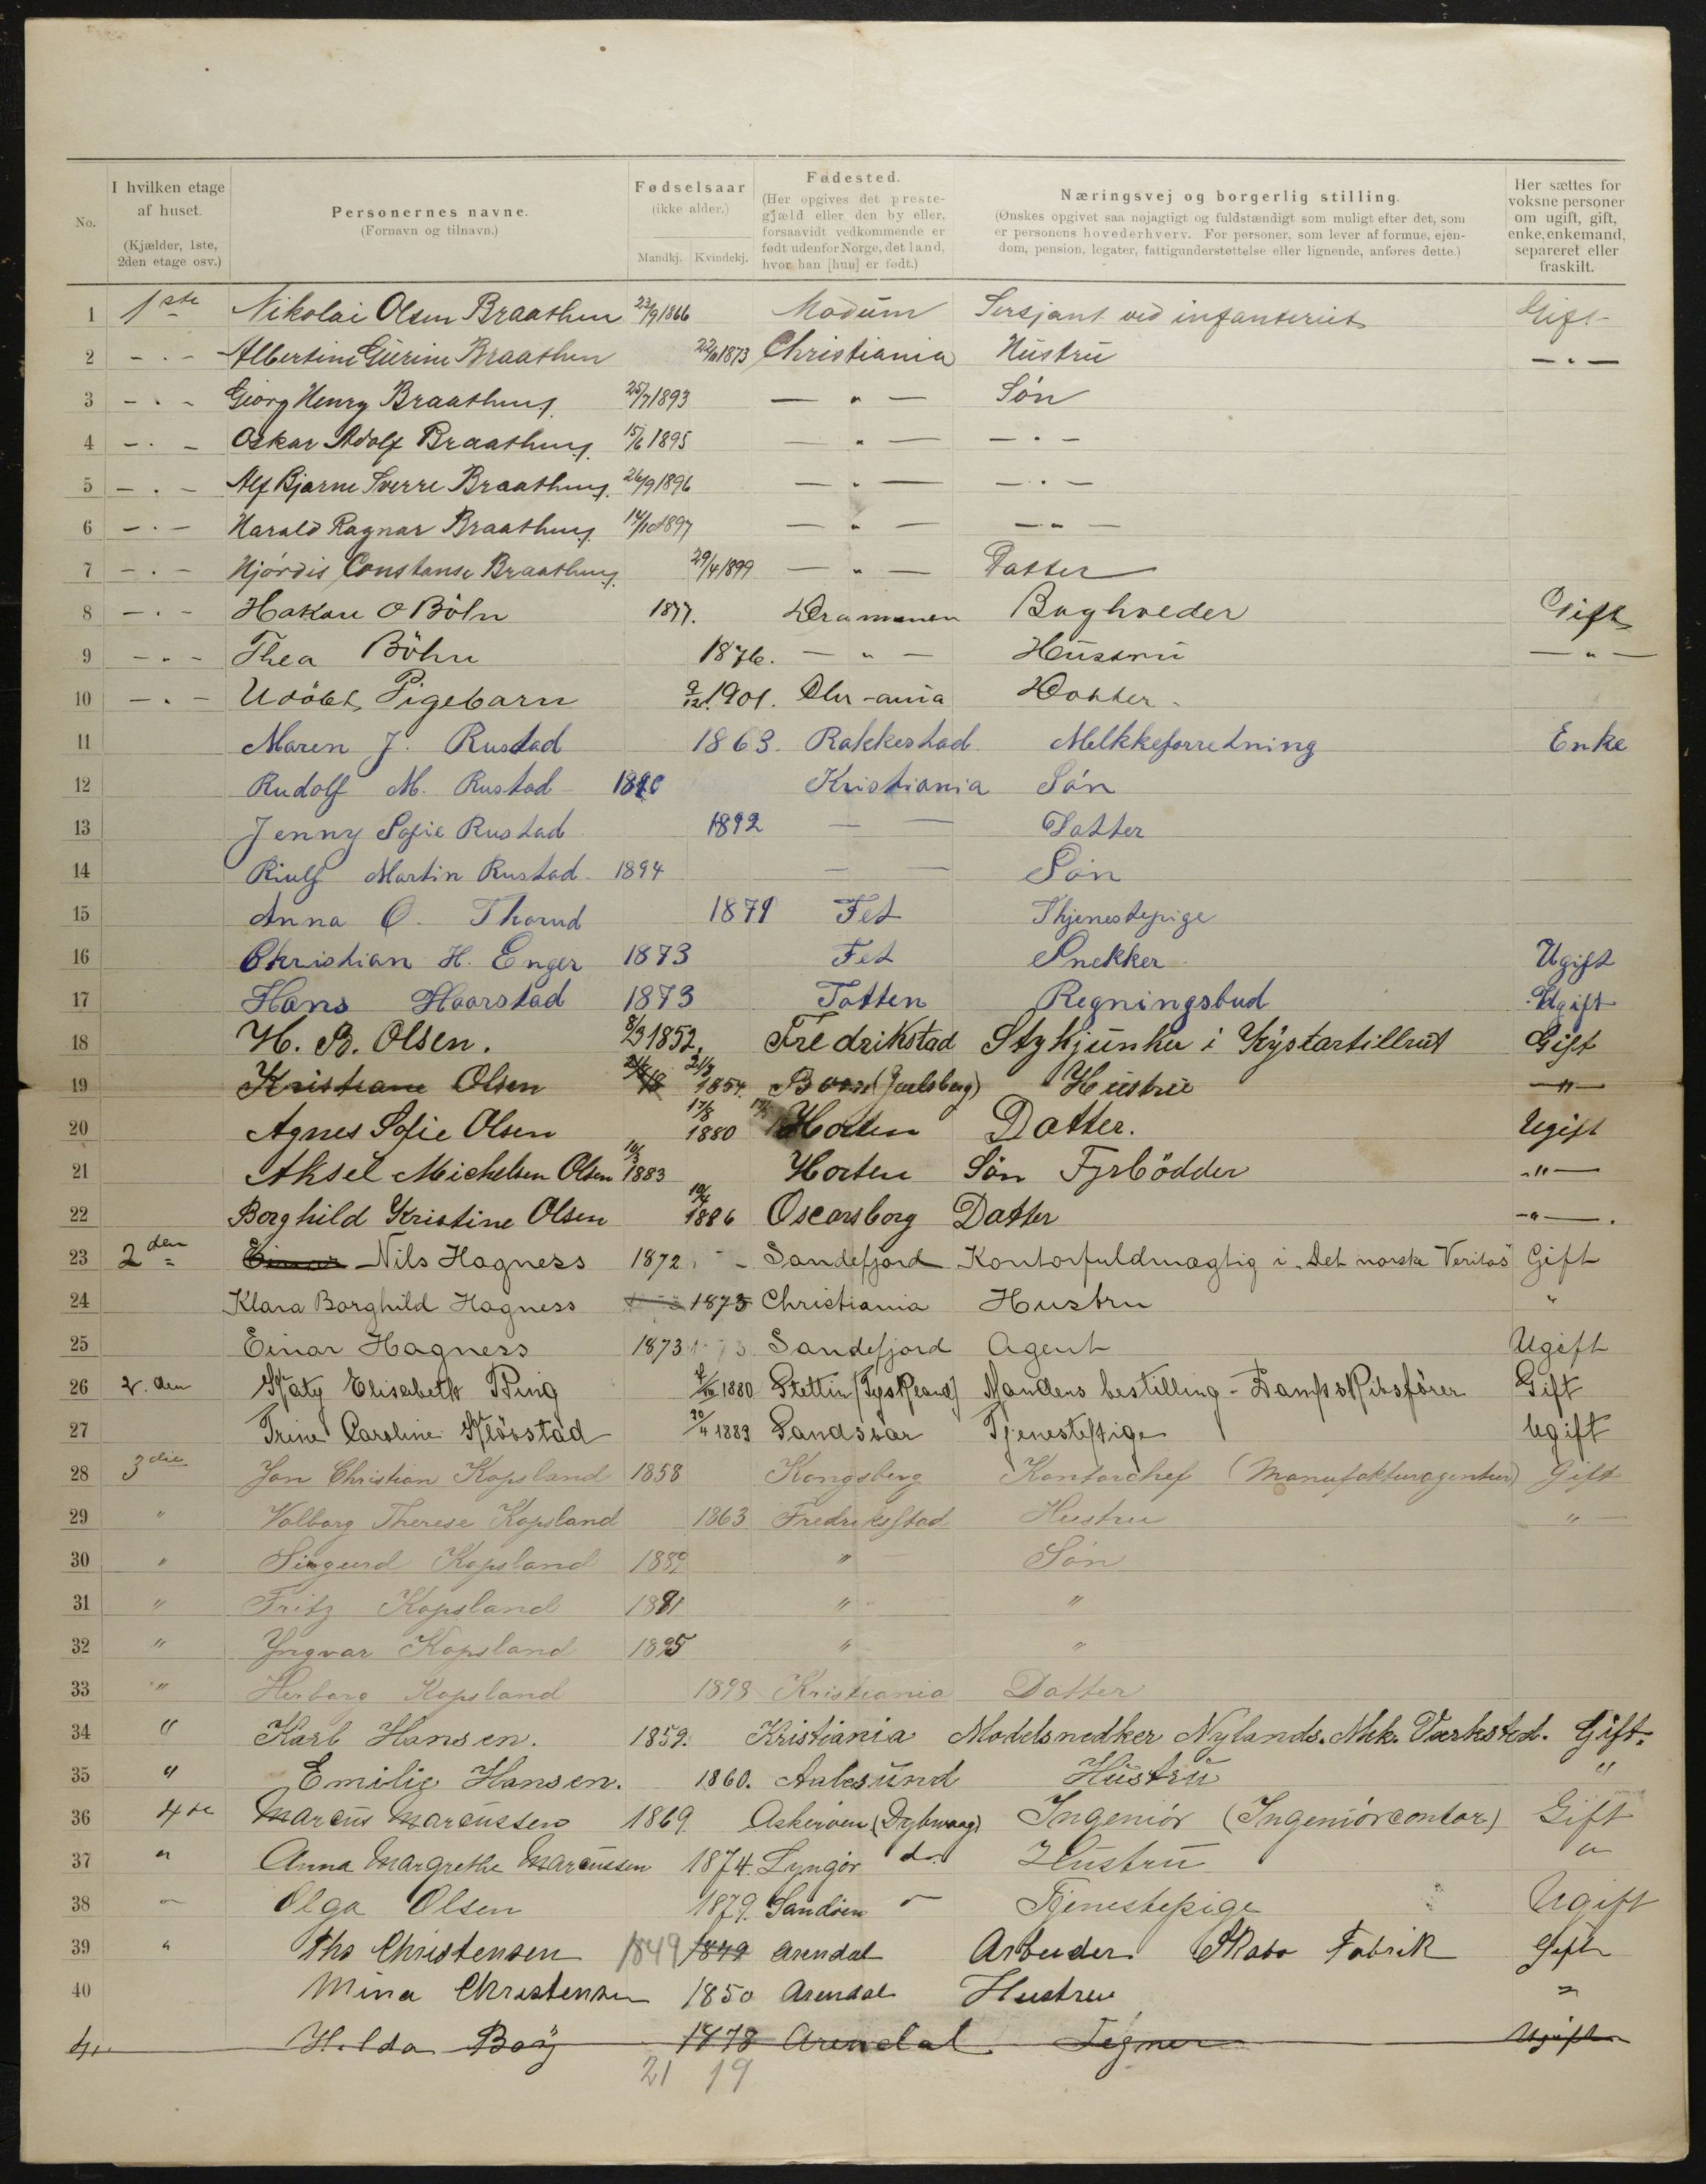 No.
I hvilken etage af huset.
(Kjælder, 1ste, 2den etage osv.)
Personernes navne.
(Fornavn og tilnavn.)
Fødselsaar
(ikke alder.)
Mandkj. Kvindekj.
Fødested.
(Her opgives det prestegjæld eller den by eller, forsaavidt vedkommende er født udenfor Norge, det land, hvor han [hun] er født.)
Næringsvej og borgerlig stilling.
(Ønskes opgivet saa nøjagtigt og fuldstændigt som muligt efter det, som er personens hovederhverv. For personer, som lever af formue, ejendom, pension, legater, fattigunderstøttelse eller lignende, anføres dette.)
Her sættes for voksne personer om ugift, gift, enke, enkemand, separeret eller fraskilt.
1 1ste Nikolai Olsen Braathen 23/9 1866 Modum Sersjant ved infanteriet Gift
2 - " - Albertine Gurine Braathen 22/11 1873 Christiania Hustru - " -
3 - " - Georg Henry Braathen 25/7 1893 - " - Søn
4 - " - Oskar Adolf Braathen 15/6 1895 - " - - " -
5 - " - Alf Bjarne Sverre Braathen 26/9 1896 - " - - " -
6 - " - Harald Ragnar Braathen 14/10 1897 - " - - " -
7 - " - Hjördis Constanse Braathen 29/4 1899 - " - Datter
8 - " - Hakon O Böhn 1877. Drammen Bogholder Gift
9 - " - Thea Böhn 1876. - " - Hustru - " -
10 - " - Udöbt Pigebarn 9/12 1901. Chr-ania Datter
11 Maren J. Rustad 1863. Rakkestad Melkkeforretning Enke
12 Rudolf M. Rustad 1890 Kristiania Sön
13 Jenny Sofie Rustad 1892 — — Datter
14 Riulf Martin Rustad 1894 — — Sön
15 Anna O. Thorud 1879 Fet Thjenestepige
16 Christian H. Enger 1873 Fet Snekker Ugift
17 Hans Haarstad 1873 Totten Regningsbud Ugift
18 H. B. Olsen. 8/3 1852. Fredrikstad Stykjunker i Kystartilleriet Gift
19 Kristiane Olsen 21/8 1854. (Jarlsberg) Hustru - " -
20 Agnes Sofie Olsen 17/8 1880 Horten Datter. Ugift
21 Aksel Michelsen Olsen 10/3 1883 Horten Sön Fyrbödder - " -
22 Borghild Kristine Olsen 10/4 1886 Oscarsborg Datter - " - .
23 2den Einar Nils Hagness 1872 Sandefjord Kontorfuldmægtig i "Det norske Veritas" Gift
24 Klara Borghild Hagness 1873 Christiania Hustru "
25 Einar Hagness 1873 Sandefjord Agent Ugift
26 2.den Katy Elisabeth Ring 1880 Stettin (Tyskland) Mandens bestilling - Dampskibsförer Gift
27 Trine Caroline Klövstad 20/4 1883 Sandsvär Tjenestepige Ugift
28 3die Jan Christian Kopsland 1858 Kongsberg Kontorchef (Manufakturagentur) Gift
29 " Valborg Therese Kopsland 1863 Fredriksstad Hustru "
30 " Siegurd Kopsland 1889 " Sön
31 " Fritz Kopsland 1891 " "
32 " Yngvar Kopsland 1895 " "
33 " Herborg Kopsland 1898 Kristiania Datter
34 " Karl Hansen. 1859. Kristiania Modelsnedker Nylands. Mek. Værksted. Gift.
35 " Emilie Hansen. 1860. Aalesund Hustru "
36 4de Marcus Marcussen 1869 Askeröen (Dybvaag) Ingeniör (Ingeniörcontor) Gift
37 " Anna Margrethe Marcussen 1874. Lyngör do. Hustru "
38 " Olga Olsen 1879. Sandöen " Tjenestepige Ugift
39 " Ths Christensen 1849 1849 Arendal Arbeider Skabo Fabrik Gift
40 Mina Christensen 1850 Arendal Hustru "
41 Hilda Boÿ 1878 Arendal Tegner Ugift
21 19